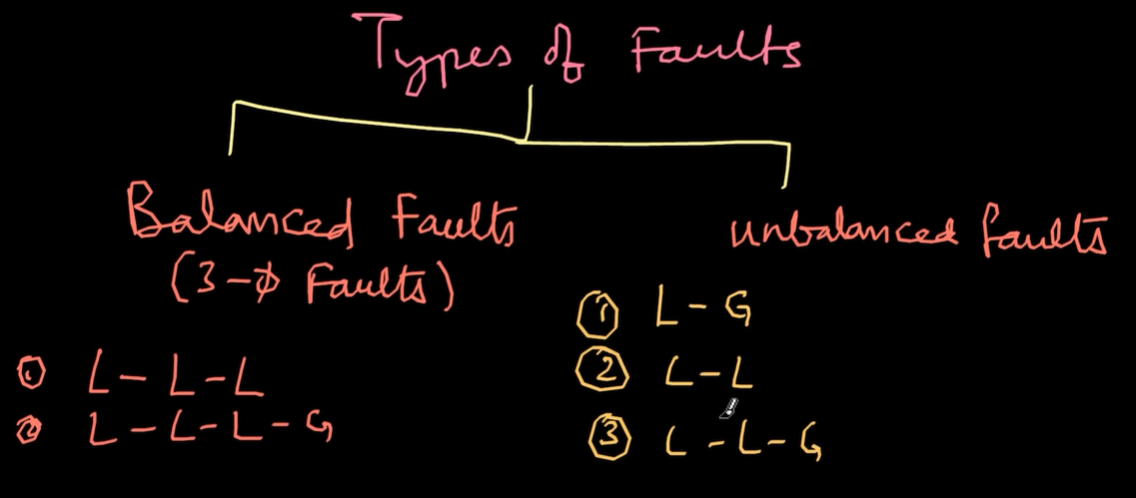 Types of Faults
Balanced Faults
(3-ϕ Faults)
① L - L - L
② L - L - L - G
unbalanced faults
① L - G
② L - L
③ L - L - G